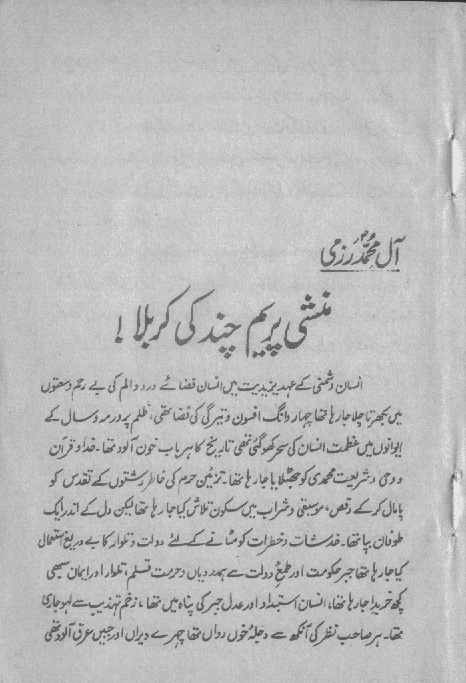 آل محمدؐ رزمی
منشی پریم چند کی کربلا!
انسان دشمنی کے عہدِ یزیدیت میں انسان فضائے درد و الم کی بے رحم وسعتوں
میں بکھرتا چلا جا رہا تھا چہار دانگ افسون و تیرگی کی فضا تھی، ظلم پرور مہ و سال کے
ایوانوں میں عظمت انسان کی سحر کھو گئی تھی تاریخ کا ہر باب خون آلود تھا۔ خدا و قرآن
و وحی و شریعت محمدی کو جھٹلایا جا رہا تھا۔ تزئین حرم کی خاطر رشتوں کے تقدس کو
پامال کر کے رقص، موسیقی و شراب میں سکون تلاش کیا جا رہا تھا لیکن دل کے اندر ایک
طوفان بپا تھا۔ خدشات و خطرات کو مٹانے کے لئے دولت و تلوار کا بے دریغ استعمال
کیا جا رہا تھا جبر حکومت اور طمع دولت سے ہمدردیاں و حرمت قلم، تلوار اور ایمان سبھی
کچھ خریدا جا رہا تھا، انسان استبداد اور عدل جبر کی پناہ میں تھا، زخم تہذیب سے لہو جاری
تھا۔ ہر صاحب نظر کی آنکھ سے دجلۂ خوں رواں تھا چہرے ویراں اور جبیں عرق آلود تھی